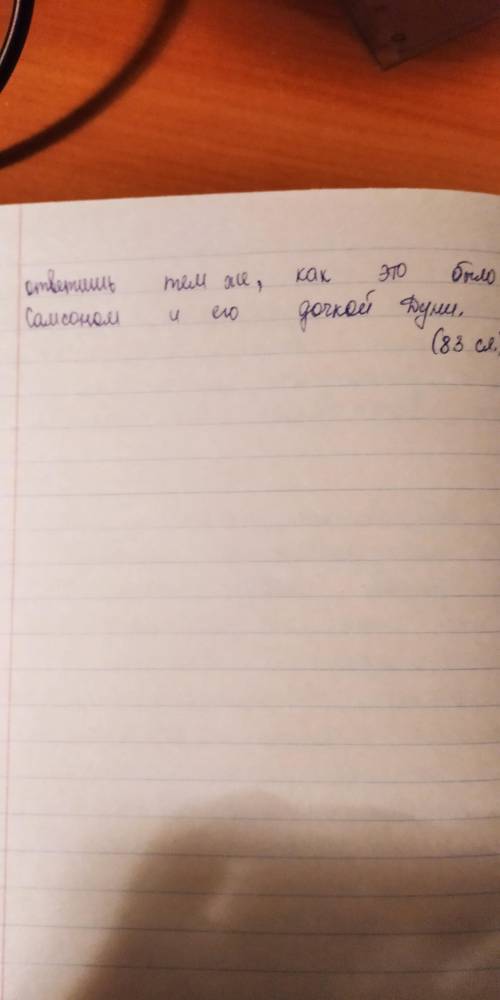 ответишь тем же, как это было
Самсоном и его дочкой Дуни.
(83 сл.)